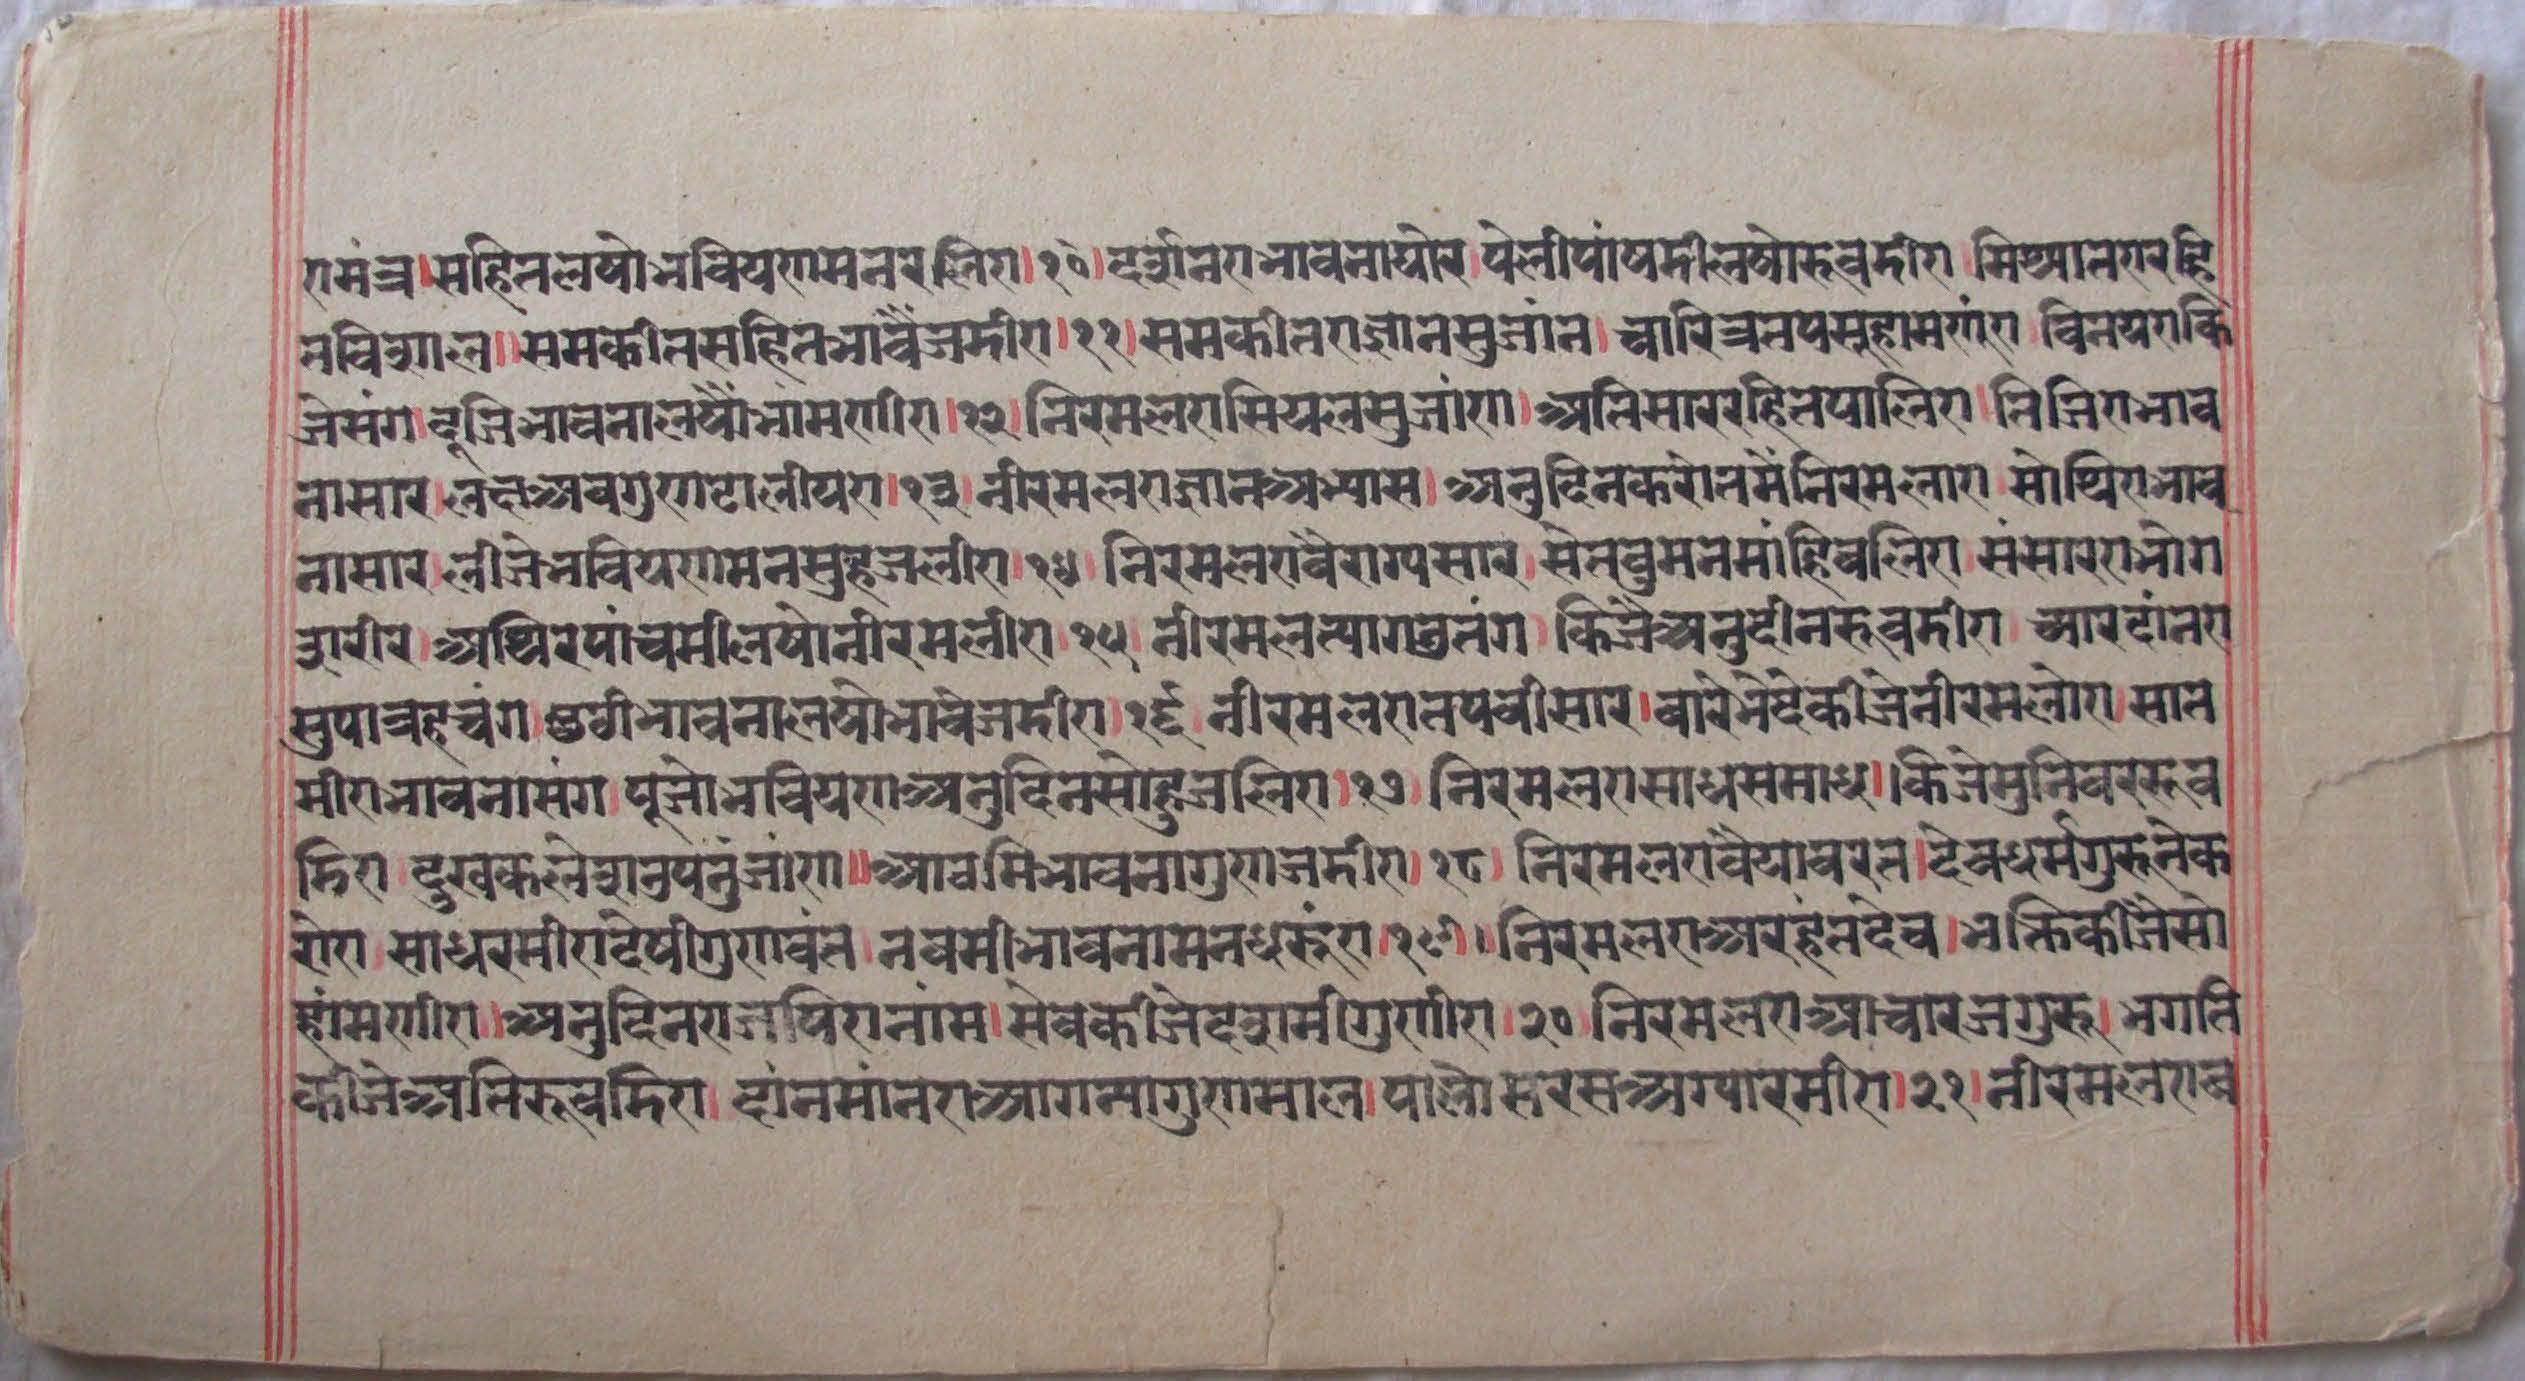 रामंत्र। सहितलषो भवियणमनरलिरा। १०। दर्शनराभावनाषोर पेलीषांषदीलषोरूवदीरा मिथ्यातरारहि
तविशाल॥ समकीतसहितभावैजदीरा। ११। समकीतराज्ञानसुजांन। चारित्रतपसूहामणांरा विनयराकि
जेसंग दूजिभावनालषौंभांमणीरा। १२। निरमलरासियलसुजांण। अतिसाररहितपालिरा। तिजिराभाव
नासार। लहअवगुणटालीयरा। १३। नीरमलराज्ञानअभ्यास। अनुदिनकरोतमैंनिरमलारा सोथिराभाव
नासार। लीजेभवियणमनसुहजलीरा। १४। निरमलरावैराग्यसार। सेतवुमनमांहिवलिरा संसारराभोग
शरीर। अथिरपांचमीलषोनीरमलीरा। १५। नीरमलत्यागव्रतंग किजैअनुदीनरूवदीरा आरदांनरा
सुपात्रहचंग छठीभावनालषोभावेजदीरा। १६। नीरमलरातपवीसार। बारेभेदेकीजेनीरमलोरा। सात
मीराभावनासंग पूजोभवियणअनुदिनसोहुजलिरा। १७ निरमलरासाधसमाध। किजेमुनिवररूव
दिरा दुखकलेशनुपनुंजांण॥ आठमिभावनागुणजदीरा। १८। निरमलरावैयावरत। देवधर्मगुरूनेक
रोरा साधरमीरादेषीगुणवंत नवमीभावनामनधरूंरा। १९। निरमलराअरहंतदेव। भक्तिकीजेसो
हांमणीरा। अनुदिनराजपिरानांम। सेवकीजेदशमीगुणीरा। २० निरमलराआचारजगुरू। भगति
कीजेअतिरूवदिरा दांनमांनराआगन्यागुणमाल। पालोसरसअग्यारमीरा। २१। नीरमलराब